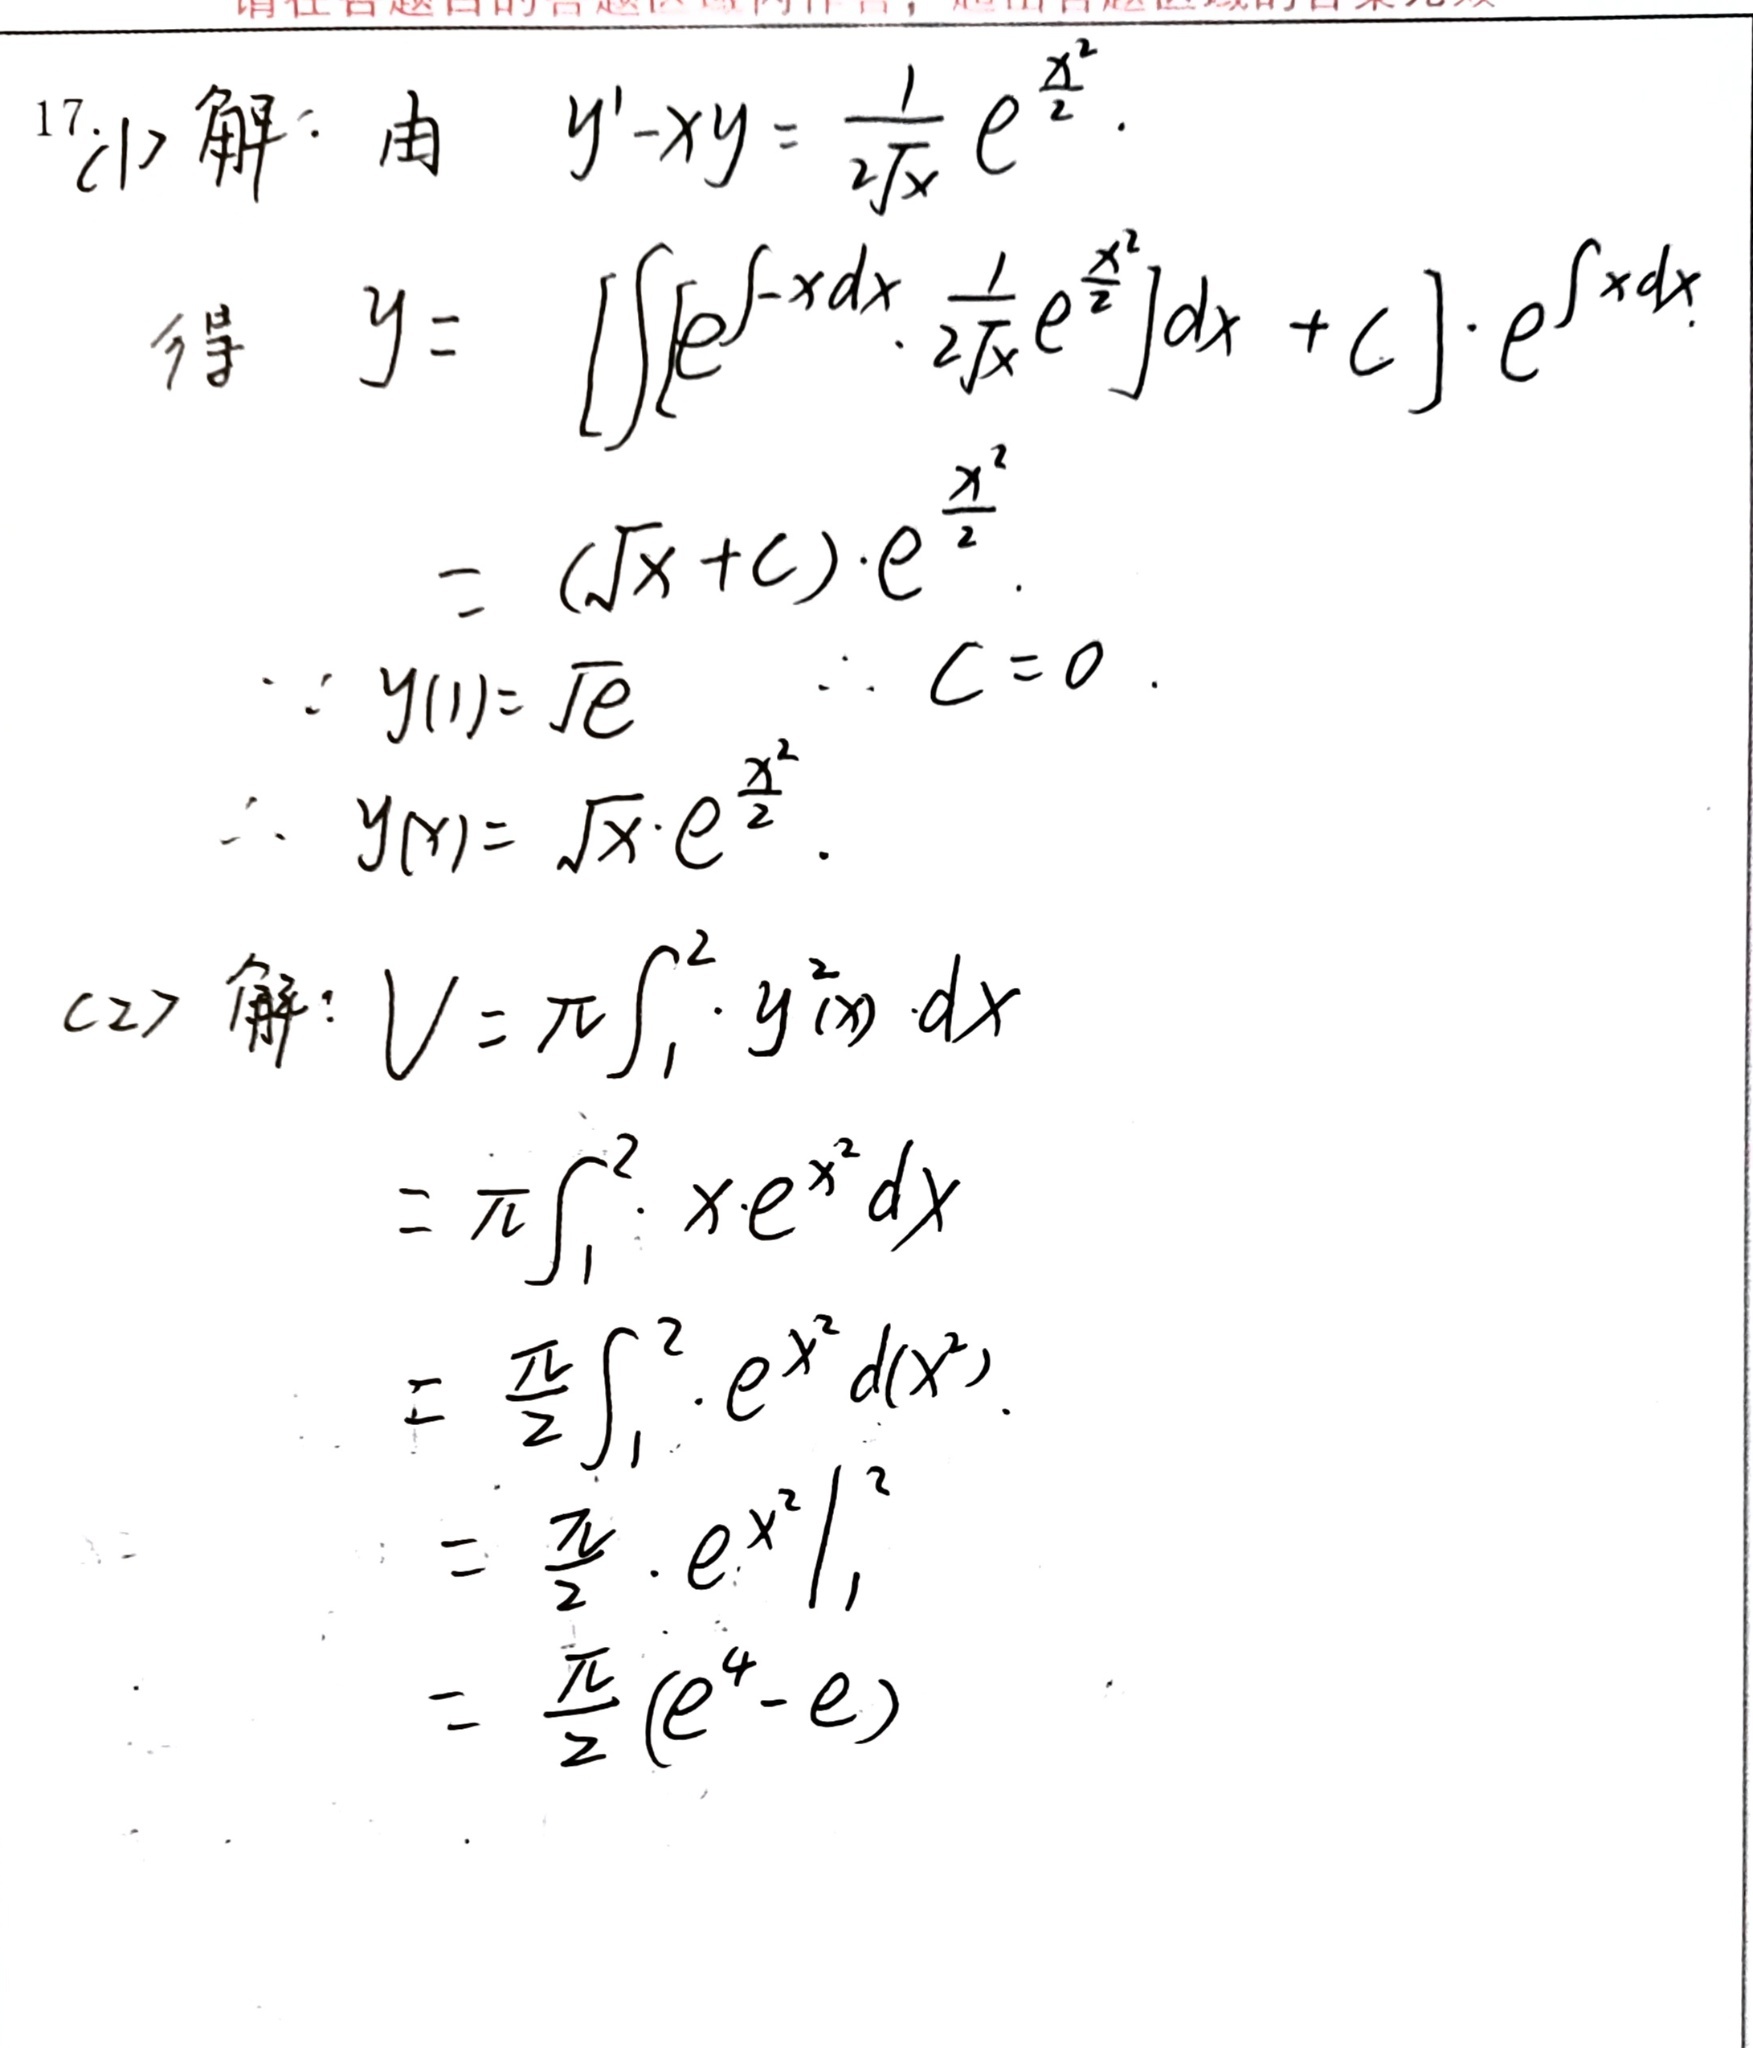 17.(1) 解: 由 y'-xy = \frac{1}{2\sqrt{x}} e^{\frac{x^2}{2}}.
得 y = [∫[e^{∫-xdx} · \frac{1}{2\sqrt{x}} e^{\frac{x^2}{2}}]dx + C] · e^{∫xdx}.
= (\sqrt{x}+C)·e^{\frac{x^2}{2}}.
∵ y(1)=\sqrt{e} ∴ C=0.
∴ y(x)= \sqrt{x}·e^{\frac{x^2}{2}}.
(2) 解: V = π∫_1^2 · y^2(x)·dx
= π∫_1^2 · x·e^{x^2}dx
= \frac{π}{2}∫_1^2 · e^{x^2}d(x^2).
= \frac{π}{2} · e^{x^2}|_1^2
= \frac{π}{2}(e^4-e)